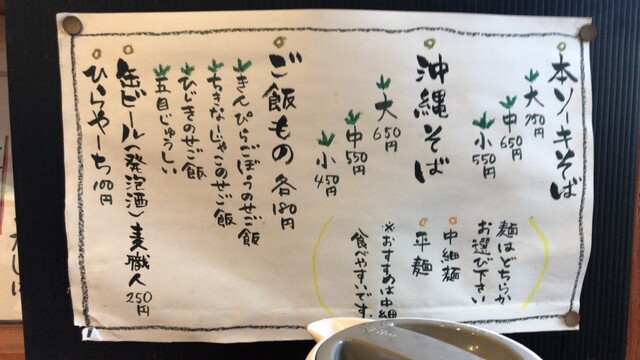 本ソーキそば
大 750円
中 650円
小 550円
麺はどちらか
お選び下さい
沖縄そば
大 650円
中 550円
小 450円
中細麺
平麺
※おすすめは中細
食べやすいです。
ご飯もの 各180円
きんぴらごぼうのせご飯
ちきなーじゃこのせご飯
ひじきのせご飯
五目じゅうしい
缶ビール(発泡酒)麦職人 250円
ひらやーち 100円